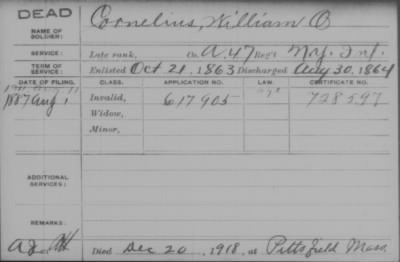 DEAD
NAME OF SOLDIER: Cornelius, William O
SERVICE: Late rank, Co. A. 47 Reg't N.Y. Inf.
TERM OF SERVICE: Enlisted Oct 21, 1863 Discharged Aug 30, 1864
DATE OF FILING. CLASS. APPLICATION NO. LAW. CERTIFICATE NO.
1887 Aug 1 Invalid, 617905 728597
Widow,
Minor,
ADDITIONAL SERVICES:
REMARKS:
Died Dec 20, 1918, at Pittsfield Mass.